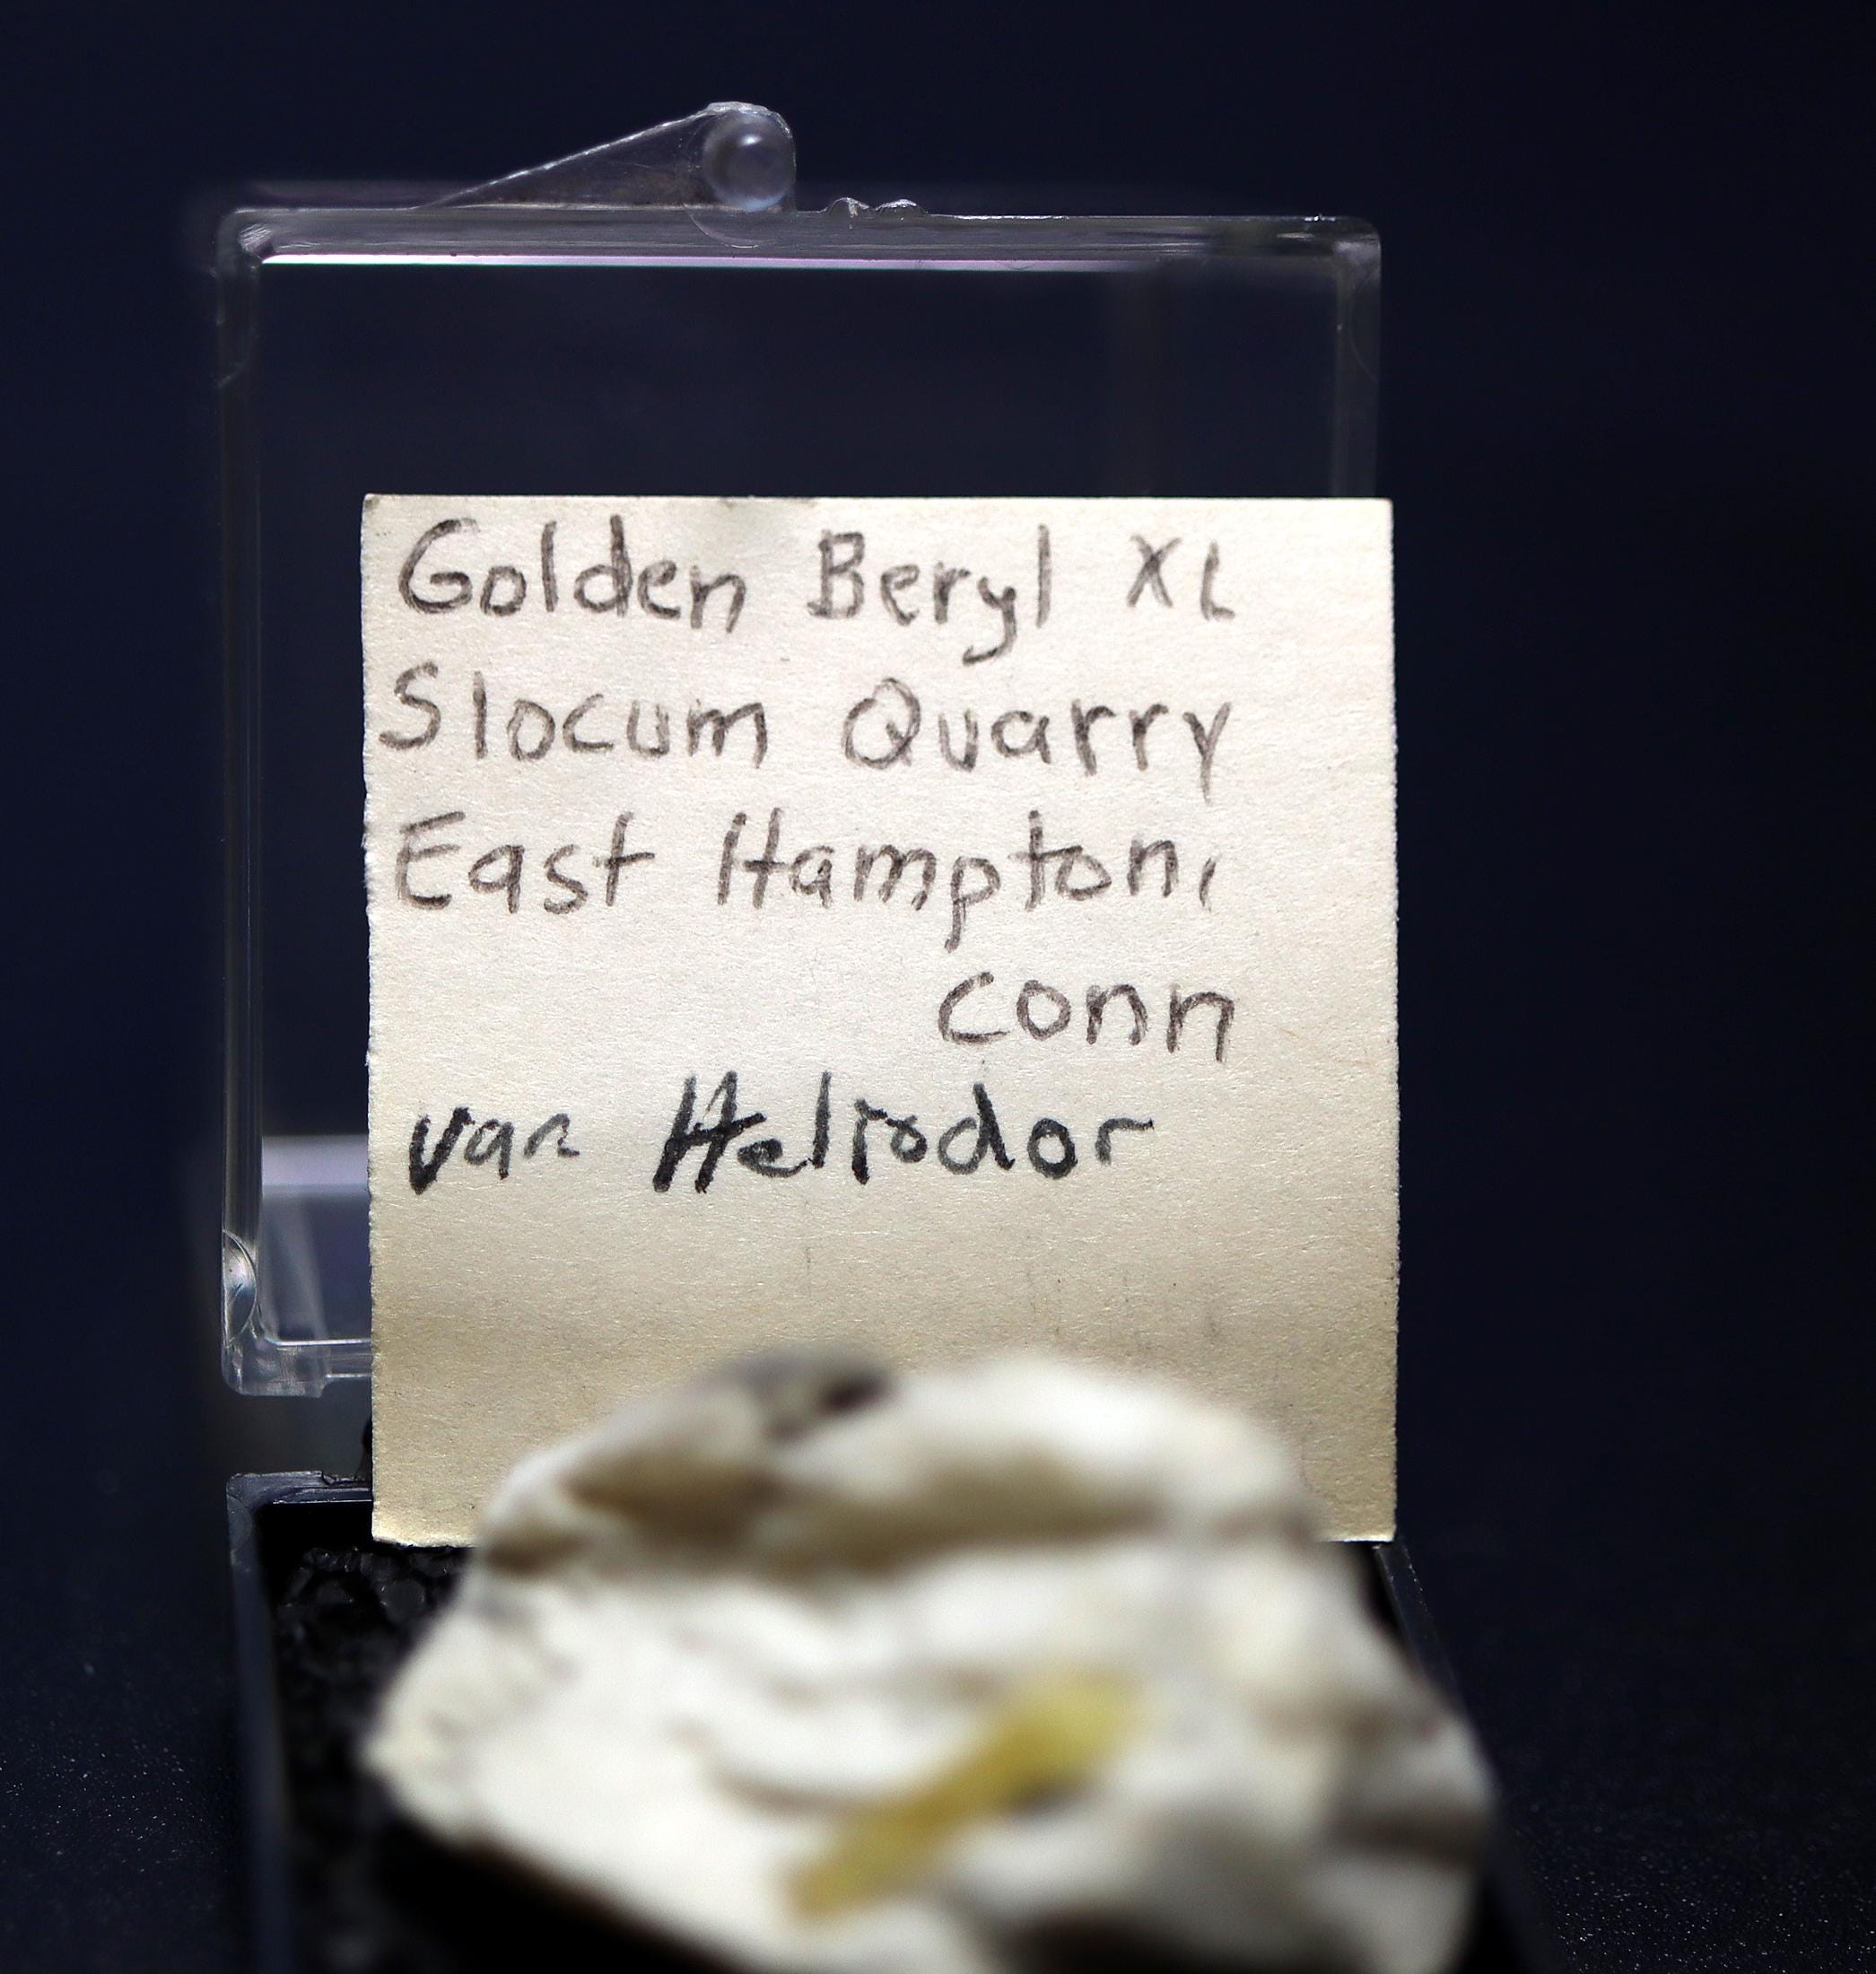 Golden Beryl XL
Slocum Quarry
East Hampton,
Conn
var Heliodor